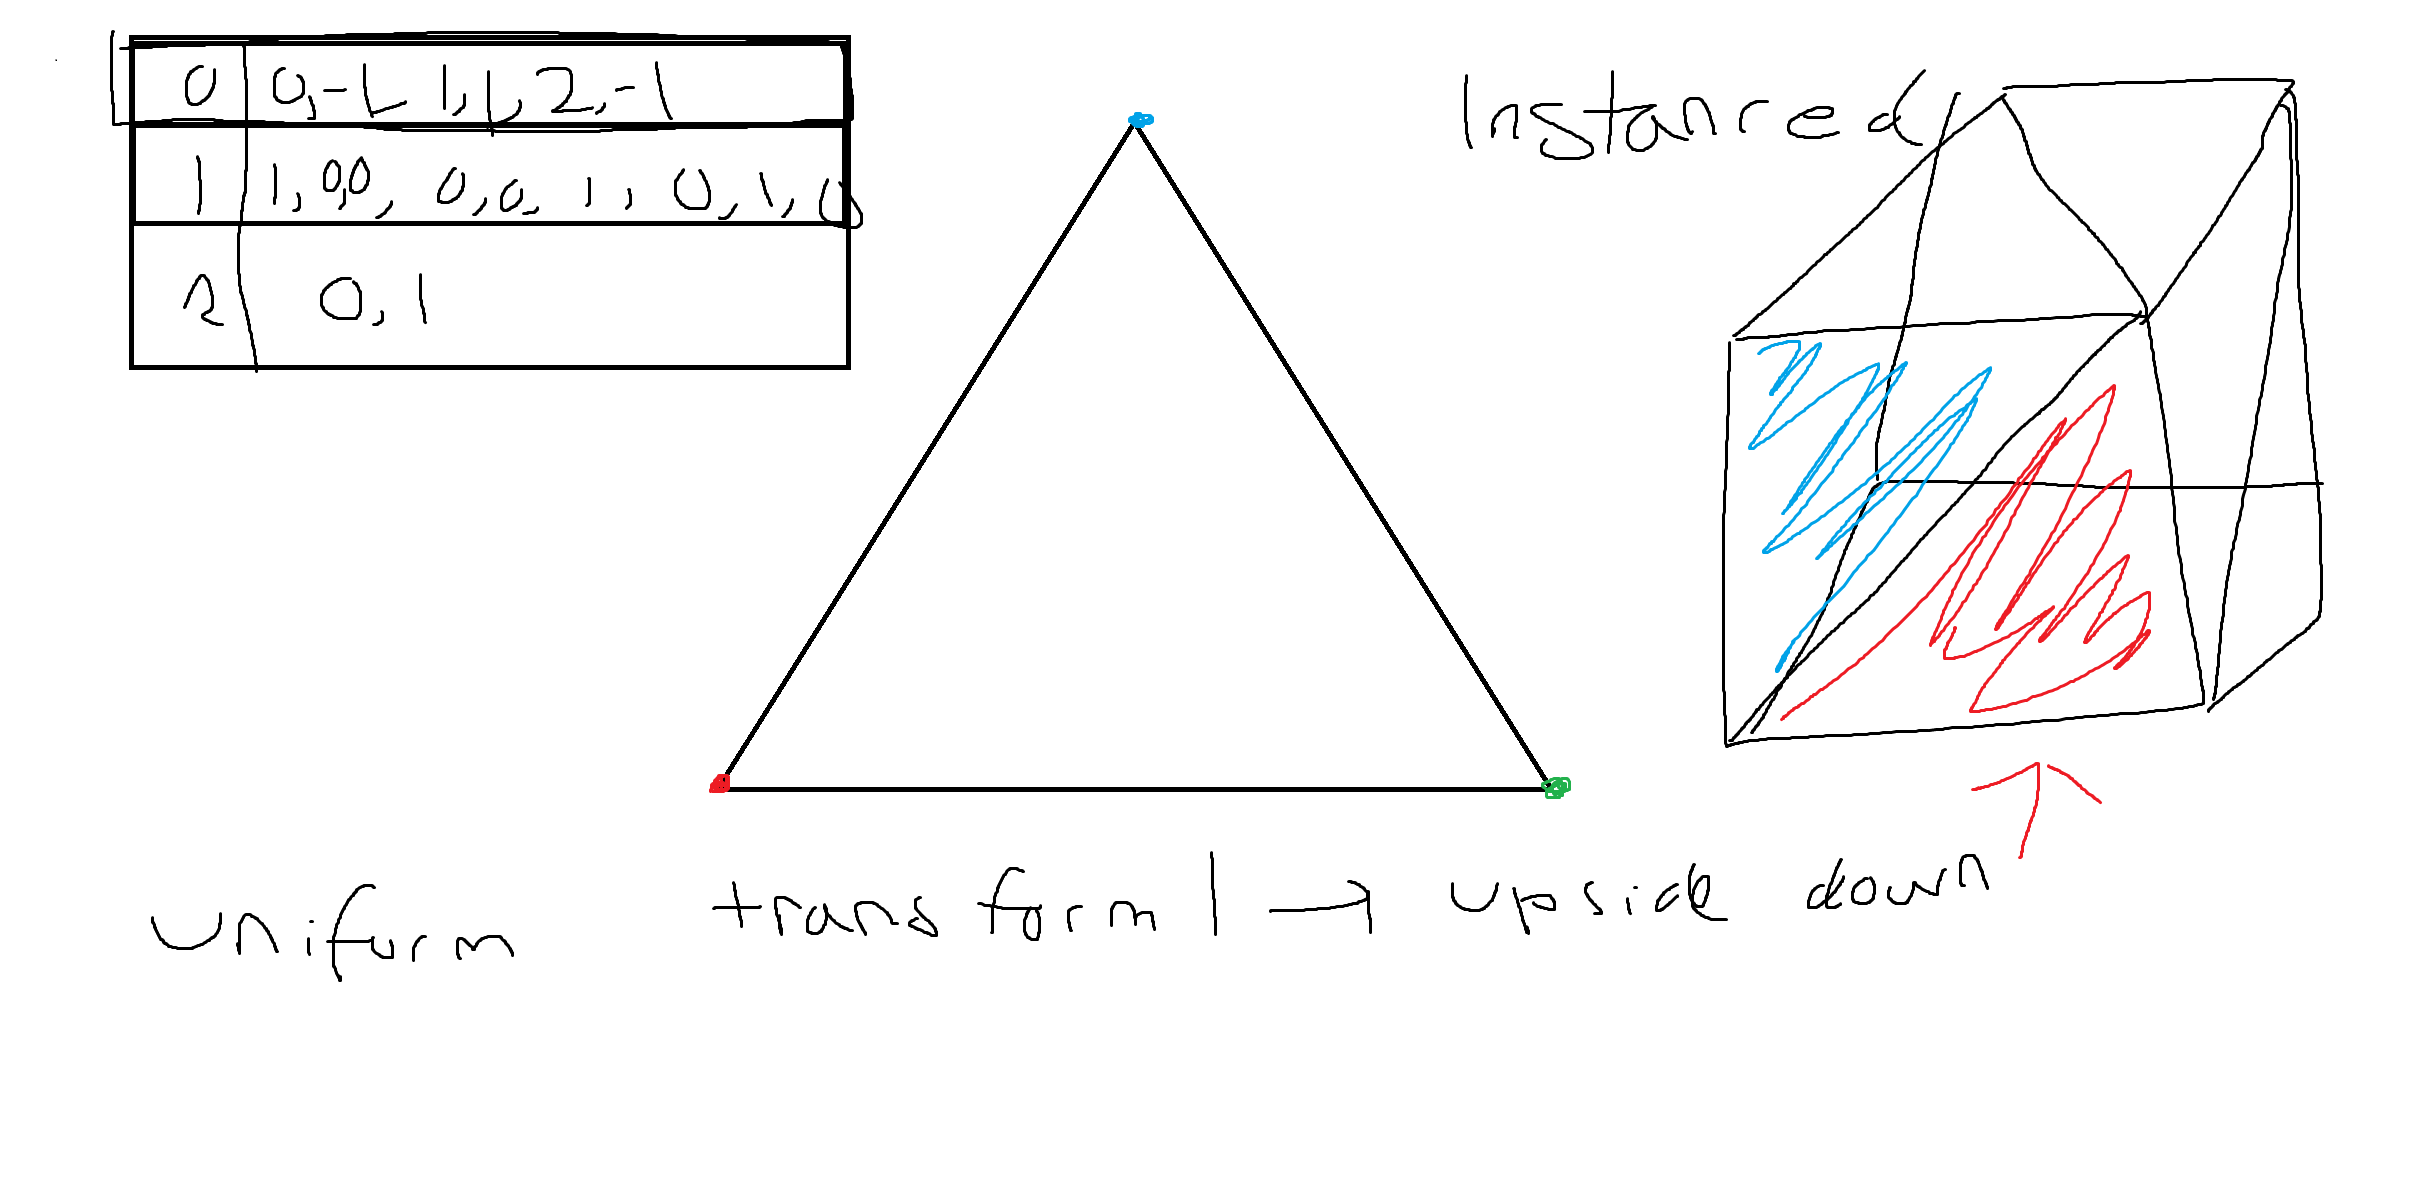 0 0,-1 1,1, 2,-1
1 1,0,0, 0,0,1, 0,1,0
2 0,1
Instanced
uniform
transform 1 → upside down